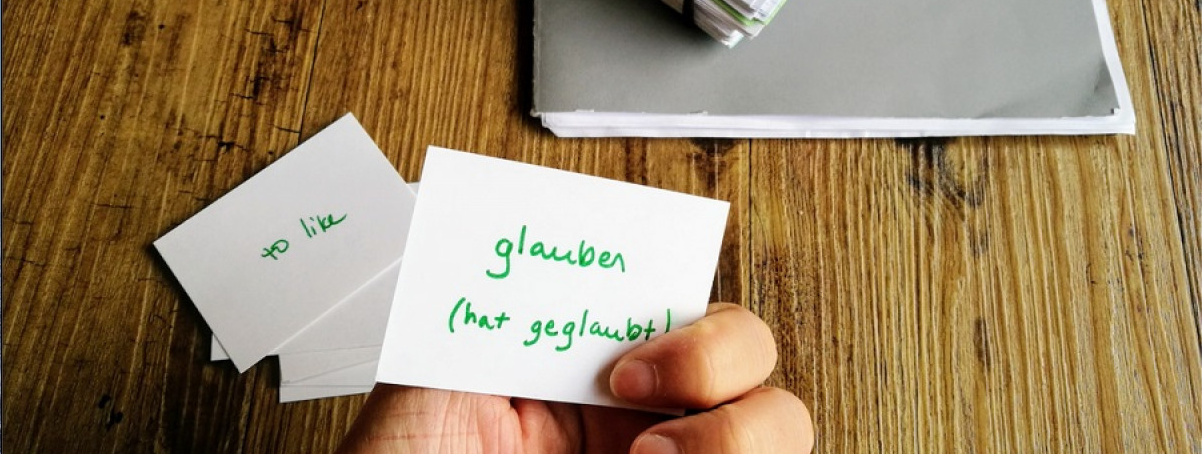 to like
glauben
(hat geglaubt)